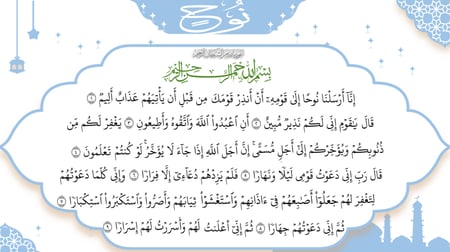 نُوح
بِسْمِ اللَّهِ الرَّحْمَٰنِ الرَّحِيمِ
إِنَّآ أَرْسَلْنَا نُوحًا إِلَىٰ قَوْمِهِۦٓ أَنْ أَنذِرْ قَوْمَكَ مِن قَبْلِ أَن يَأْتِيَهُمْ عَذَابٌ أَلِيمٌ ۝١
قَالَ يَٰقَوْمِ إِنِّى لَكُمْ نَذِيرٌ مُّبِينٌ ۝٢ أَنِ ٱعْبُدُوا۟ ٱللَّهَ وَٱتَّقُوهُ وَأَطِيعُونِ ۝٣ يَغْفِرْ لَكُم مِّن
ذُنُوبِكُمْ وَيُؤَخِّرْكُمْ إِلَىٰٓ أَجَلٍ مُّسَمًّى ۚ إِنَّ أَجَلَ ٱللَّهِ إِذَا جَآءَ لَا يُؤَخَّرُ ۖ لَوْ كُنتُمْ تَعْلَمُونَ ۝٤
قَالَ رَبِّ إِنِّى دَعَوْتُ قَوْمِى لَيْلًا وَنَهَارًا ۝٥ فَلَمْ يَزِدْهُمْ دُعَآءِىٓ إِلَّا فِرَارًا ۝٦ وَإِنِّى كُلَّمَا دَعَوْتُهُمْ
لِتَغْفِرَ لَهُمْ جَعَلُوٓا۟ أَصَٰبِعَهُمْ فِىٓ ءَاذَانِهِمْ وَٱسْتَغْشَوْا۟ ثِيَابَهُمْ وَأَصَرُّوا۟ وَٱسْتَكْبَرُوا۟ ٱسْتِكْبَارًا ۝٧
ثُمَّ إِنِّى دَعَوْتُهُمْ جِهَارًا ۝٨ ثُمَّ إِنِّىٓ أَعْلَنتُ لَهُمْ وَأَسْرَرْتُ لَهُمْ إِسْرَارًا ۝٩